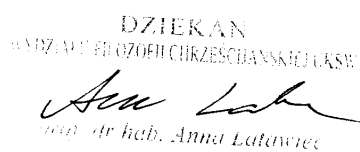 DZIEKAN
WYDZIAŁU FILOZOFII CHRZEŚCIJAŃSKIEJ UKSW
prof. dr hab. Anna Latawiec